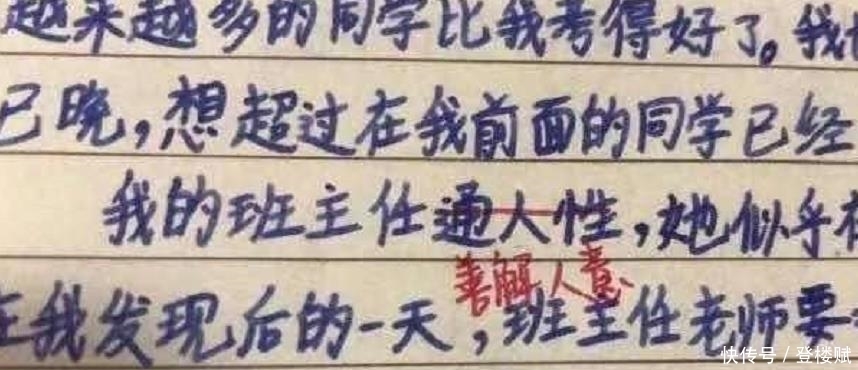 越来越多的同学比我考得好了。我
已晓,想超过在我前面的同学已经
我的班主任通人性,她似乎
善解人意
在我发现后的一天,班主任老师要
快传号 / 登楼赋